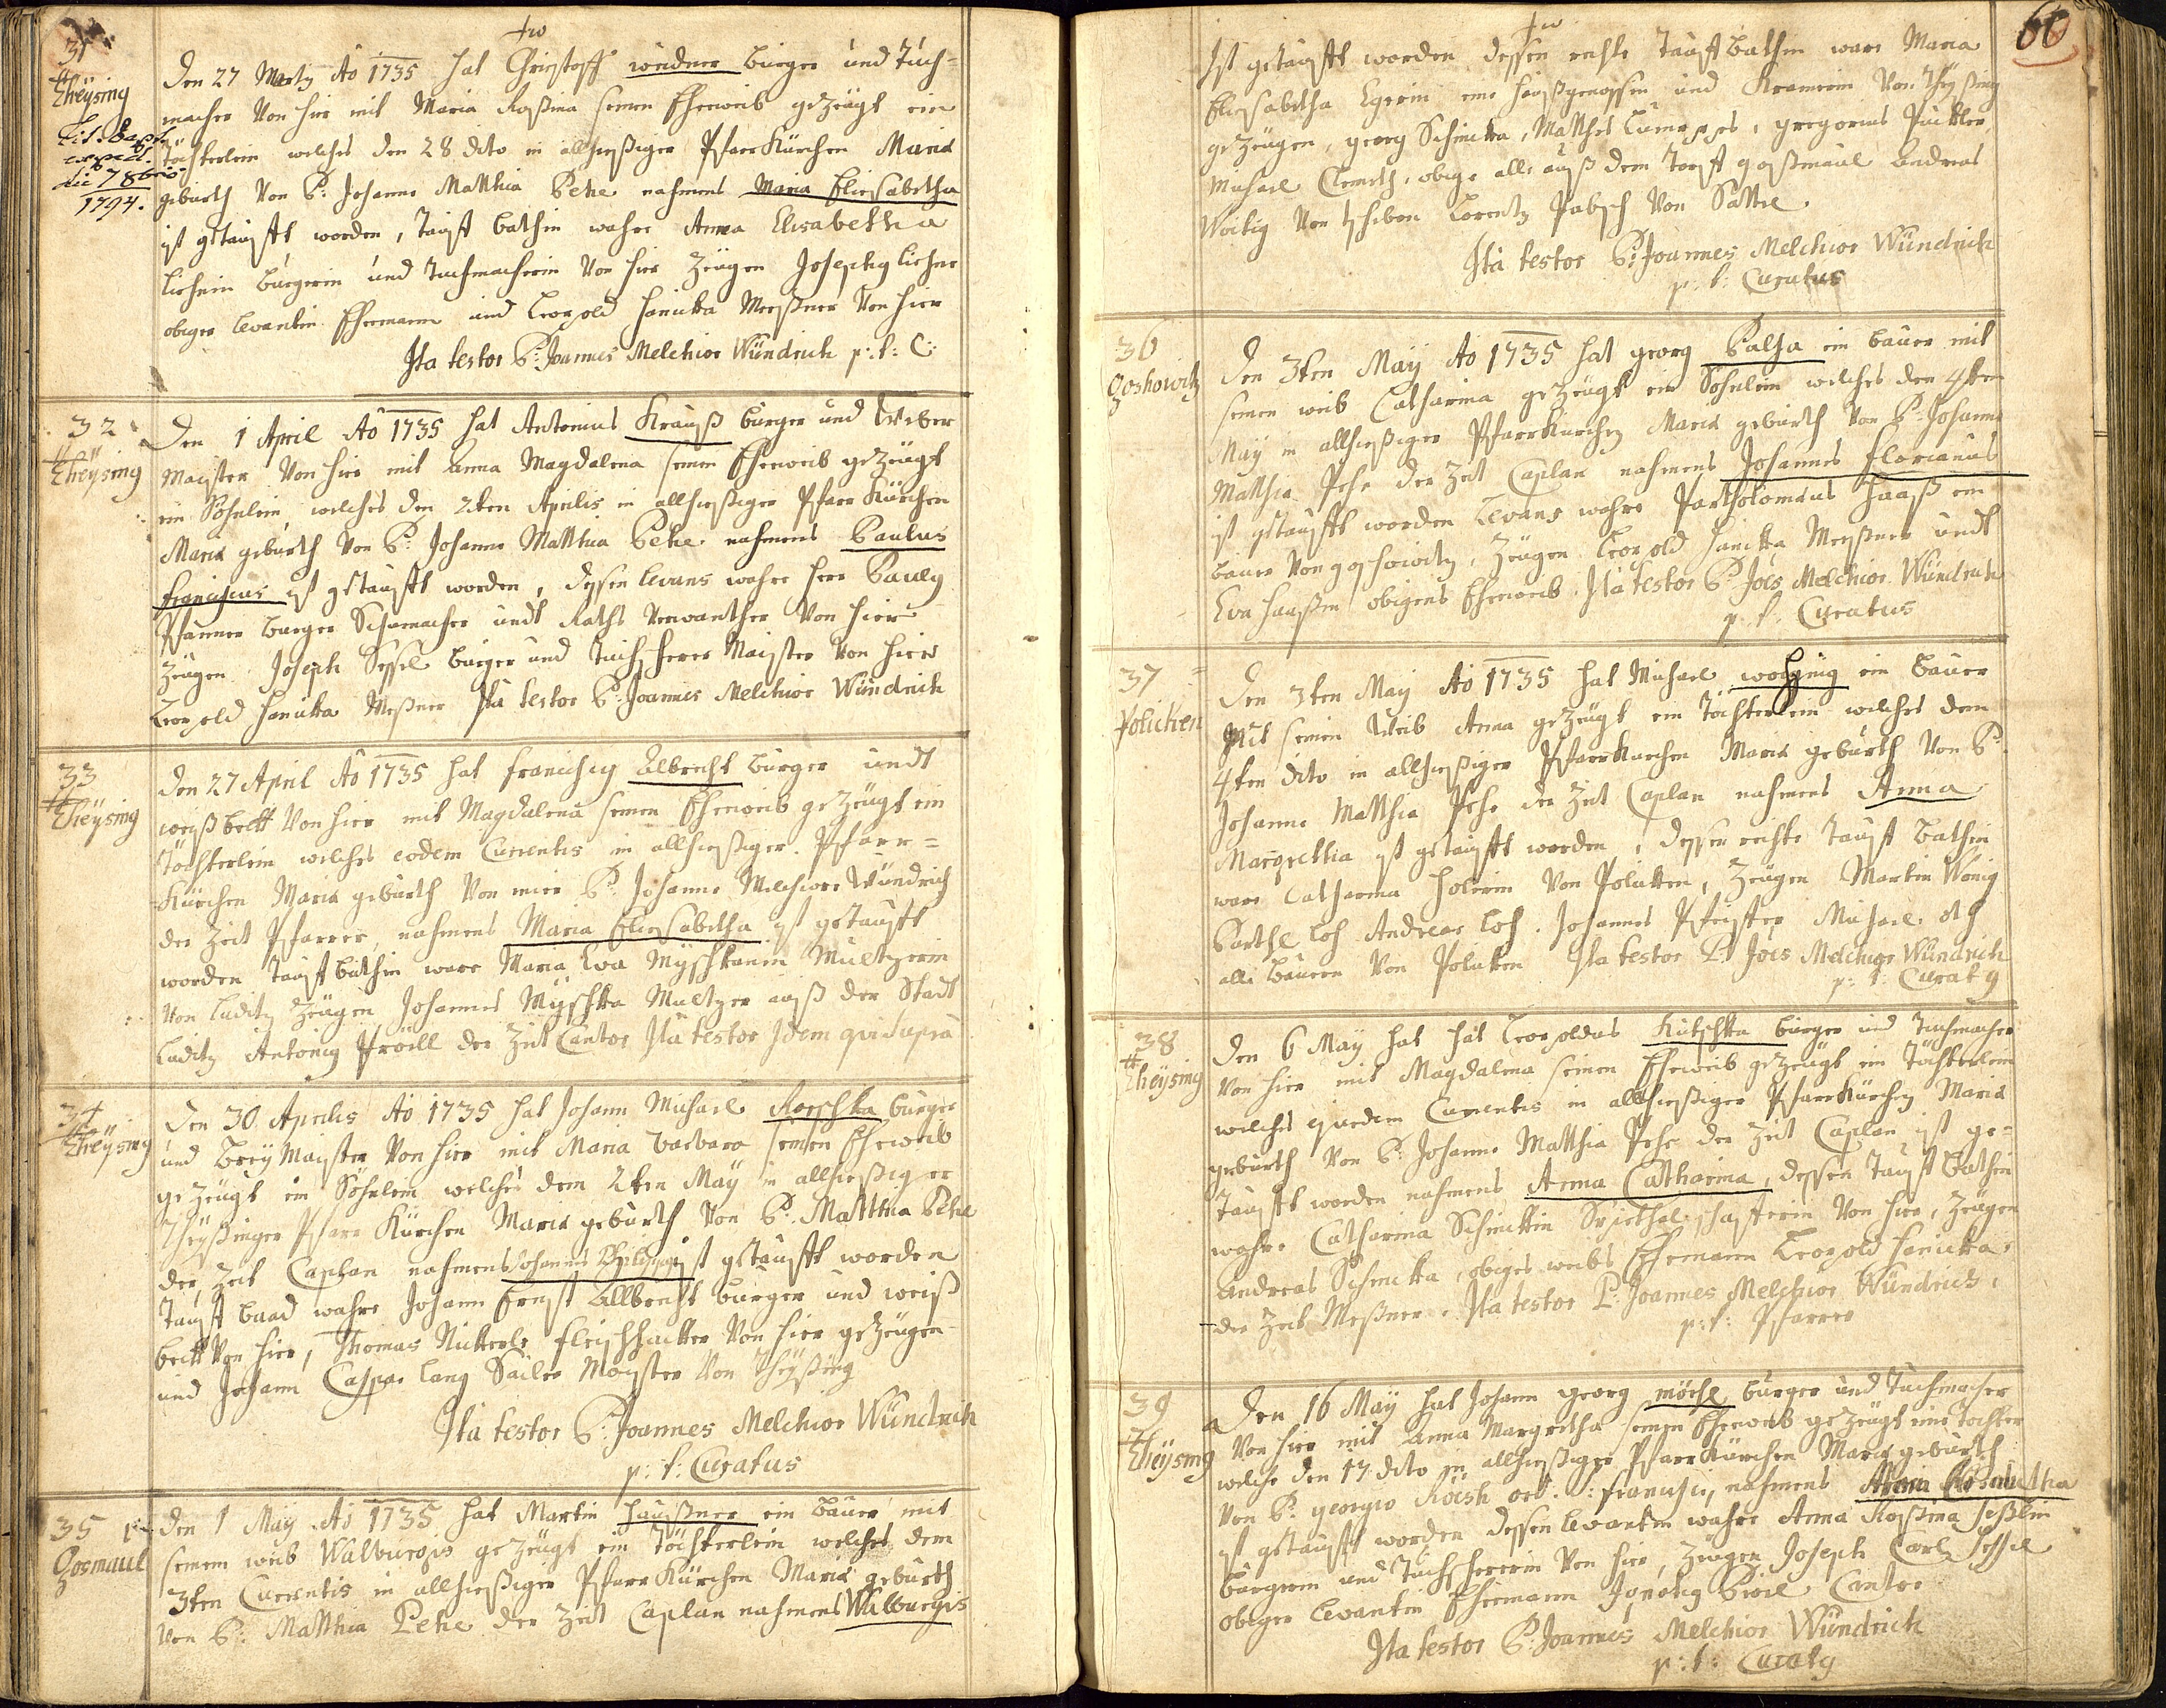 31
Theÿsing
Lit. Bapt.
exped.
die 7 8bris
1794.
Den 27 Martz Ao 1735 hat Christoff weidner bürger und Tuch=
macher Von hier mit Maria Rosina seinen Eheweib gezeügt ein
Töchterlein welches den 28 dito in allhiesiger PfarrKürchen Mariæ
geburth Von P: Johanne Matthia Pehe nahmens Maria Eliesabetha
ist getaufft worden, Tauf bathin wahre Anna Elisabetha
bürgerin und Tuchmacherin Von hier Zeügen Josephg
obiger Levantin Ehemann und Leopold Hanicka Messner Von hier
Ita testor P: Joannes Melchior Wündrich p: t: C:
32
Theÿsing
Den 1 April Ao 1735 hat Antonius Krauß bürger und Weber
Maister Von hier mit Anna Magdalena seinen Eheweib gezeügt
ein Söhnlein welches den 2ten Aprilis in allhiesiger Pfarr Kürchen
Mariæ geburth Von P: Johanne Matthia Pehe nahmens Paulus
franciscus ist getaufft worden, dessen Levans wahre herr Paulg
burger und Raths Verwanther Von hier
Zeügen Joseph Sessel bürger und Tuchscherer Maister Von hier
Leopold Hanicka Messner Ita testor P: Joannes Melchior Wündrich
33
Theÿsing
Den 27 April Ao 1735 hat franciscg Albrecht bürger undt
weißbeckh Von hier mit Magdalena seinen Eheweib gezeügt ein
Töchterlein welches eodem Currentis in allhiesiger Pfarr=
Kürchen Mariæ geburth Von mir P: Johanne Melchiore Wündrich
der Zeit Pfarrer, nahmens Maria Eliesabetha ist getaufft
worden Tauf bathin ware Maria Eva Myschkanin Multzerin
Von Luditz Zeügen Johannes Myschka Multzer auß der Stadt
Luditz Antonig Pröll der Zeit Cantor Ita testor Idem qui supra
34
Theÿsing
Den 30 Aprilis Ao 1735 hat Johann Michael Roschka bürger
und Maister Von hier mit Maria barbara seinen Eheweib
gezeügt ein Söhnlein welches dem 2ten Maÿ in allhiesiger
Theÿsinger Pfarr Kürchen Mariæ geburth Von P: Matthia Pehe
der Zeit Caplan nahmens Johannes Philippg ist getaufft worden
Tauf baad wahre Johann Ernst Allbrecht burger und weiß
beckh Von hier, Thomas Nickerl fleischhacker Von hier gezeügen
und Johann Caspar Lang Sailer Maister Von Theÿsing
Ita testor P: Joannes Melchior Wündrich
p: t: Curatus
35
Gosmaul
Den 1 May Ao 1735 hat Martin haußner ein bauer mit
seinem weib Walburgis gezeügt ein Töchterlein welches dem
3ten Currentis in allhiesiger Pfarr Kürchen Mariæ geburth
Von P: Matthia Pehe der Zeit Caplan nahmens Walburgis
60
Ist getaufft worden dessen rechte Tauf bathin ware Maria
Eliesabetha Egerin eine haußgenossin und Kramerin Von Theÿsing
gezeügen, georg Schnicka, Matthes, gregorius
Michael, obige alle auß dem Dorff goßmaul Andreas
Von Lorentz Pabsch Von
Ita testor P: Joannes Melchior Wündrich
p: t: Curatus
36
Goshowitz
Den 3ten Maÿ Ao 1735 hat georg Palha ein bauer mit
seinen weib Catharina gezeügt ein Söhnlein welches den 4ten
May in allhiesiger PfarrKürchen Mariæ geburth Von P: Johanne
Matthia Pehe der Zeit Caplan nahmens Johannes florianus
ist getaufft worden Levans wahre Partholomäus haaß ein
bauer Von goschowitz, Zeügen Leopold Hanicka Messner undt
Eva haaßin obigens Eheweib Ita testor P: Joes Melchior Wündrich
p. t. Curatus
37
Polucken
Den 3ten May Ao 1735 hat Michael ein bauer
Mit seinen Weib Anna gezeügt ein Töchterlein welches dem
4ten dito in allhiesiger Pfarrkürchen Mariæ geburth Von P:
Johanne Matthia Pehe der Zeit Caplan nahmens Anna
Margrettha ist getaufft worden, dessen rechte Tauf bathin
ware Catharina Von Polucken, Zeügen Martin König
Barthl Loh Andreas Loh. Johannes Michael
alle bauern Von Polucken Ita testor P Joes Melchior Wündrich
p: t: Curatg
38
Theÿsing
Den 6 May hat hat Leopoldus Kutschka bürger und Tuchmacher
Von hier mit Magdalena seinen Eheweib gezeügt ein Töchterlein
welches ejusdem Currentis in allhiesiger Pfarrkürchen Mariæ
geburth Von P: Johanne Matthia Pehe der Zeit Caplan ist ge=
taufft worden nahmens Anna Catharina, dessen Tauf bathin
wahre Catharina Schnickin Von hier, Zeügen
Andreas Schnicka, obiges weibs Ehemann Leopold Hanicka
der Zeit Messner. Ita testor P: Joannes Melchior Wündrich
p: t: Pfarrer
39
Theÿsing
Den 16 May hat Johann georg mörhl bürger und Tuchmacher
Von hier mit Anna Margretha seinen Eheweib gezeügt eine Tochter
welche den 17 dito in allhiesiger Pfarr Kürchen Mariæ geburth
Von P: georgio ord. S: francisci, nahmens
ist getaufft worden dessen Levantin wahre Anna Rosina Seßlin
bürgerin und Tuchscherrerin Von hier, Zeügen Joseph Carl Sessel
obiger Levantin Ehemann Cantor
Ita testor P: Joannes Melchior Wündrich
p: t: Curatg